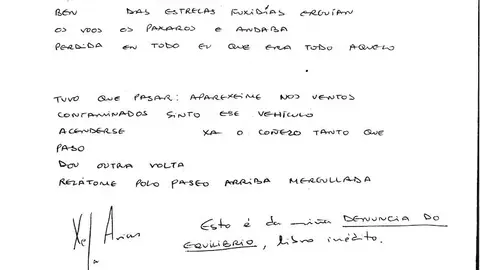 BEN DAS ESTRELAS FUXIDÍAS ERGUÍAN
OS VOOS OS PAXAROS E ANDABA
PERDIDA EN TODO EU QUE ERA TODO AQUELO
TUVO QUE PASAR: APAREXEIME NOS VENTOS
CONTAMINADOS SINTO ESE VEHÍCULO
ACENDERSE XA O COÑEZO TANTO QUE
PASO
DOU OUTRA VOLTA
RELÁTOME POLO PASEO ARRIBA MERGULLADA
Xela Arias
Esto é da miña DENUNCIA DO
EQUILIBRIO, libro inédito.